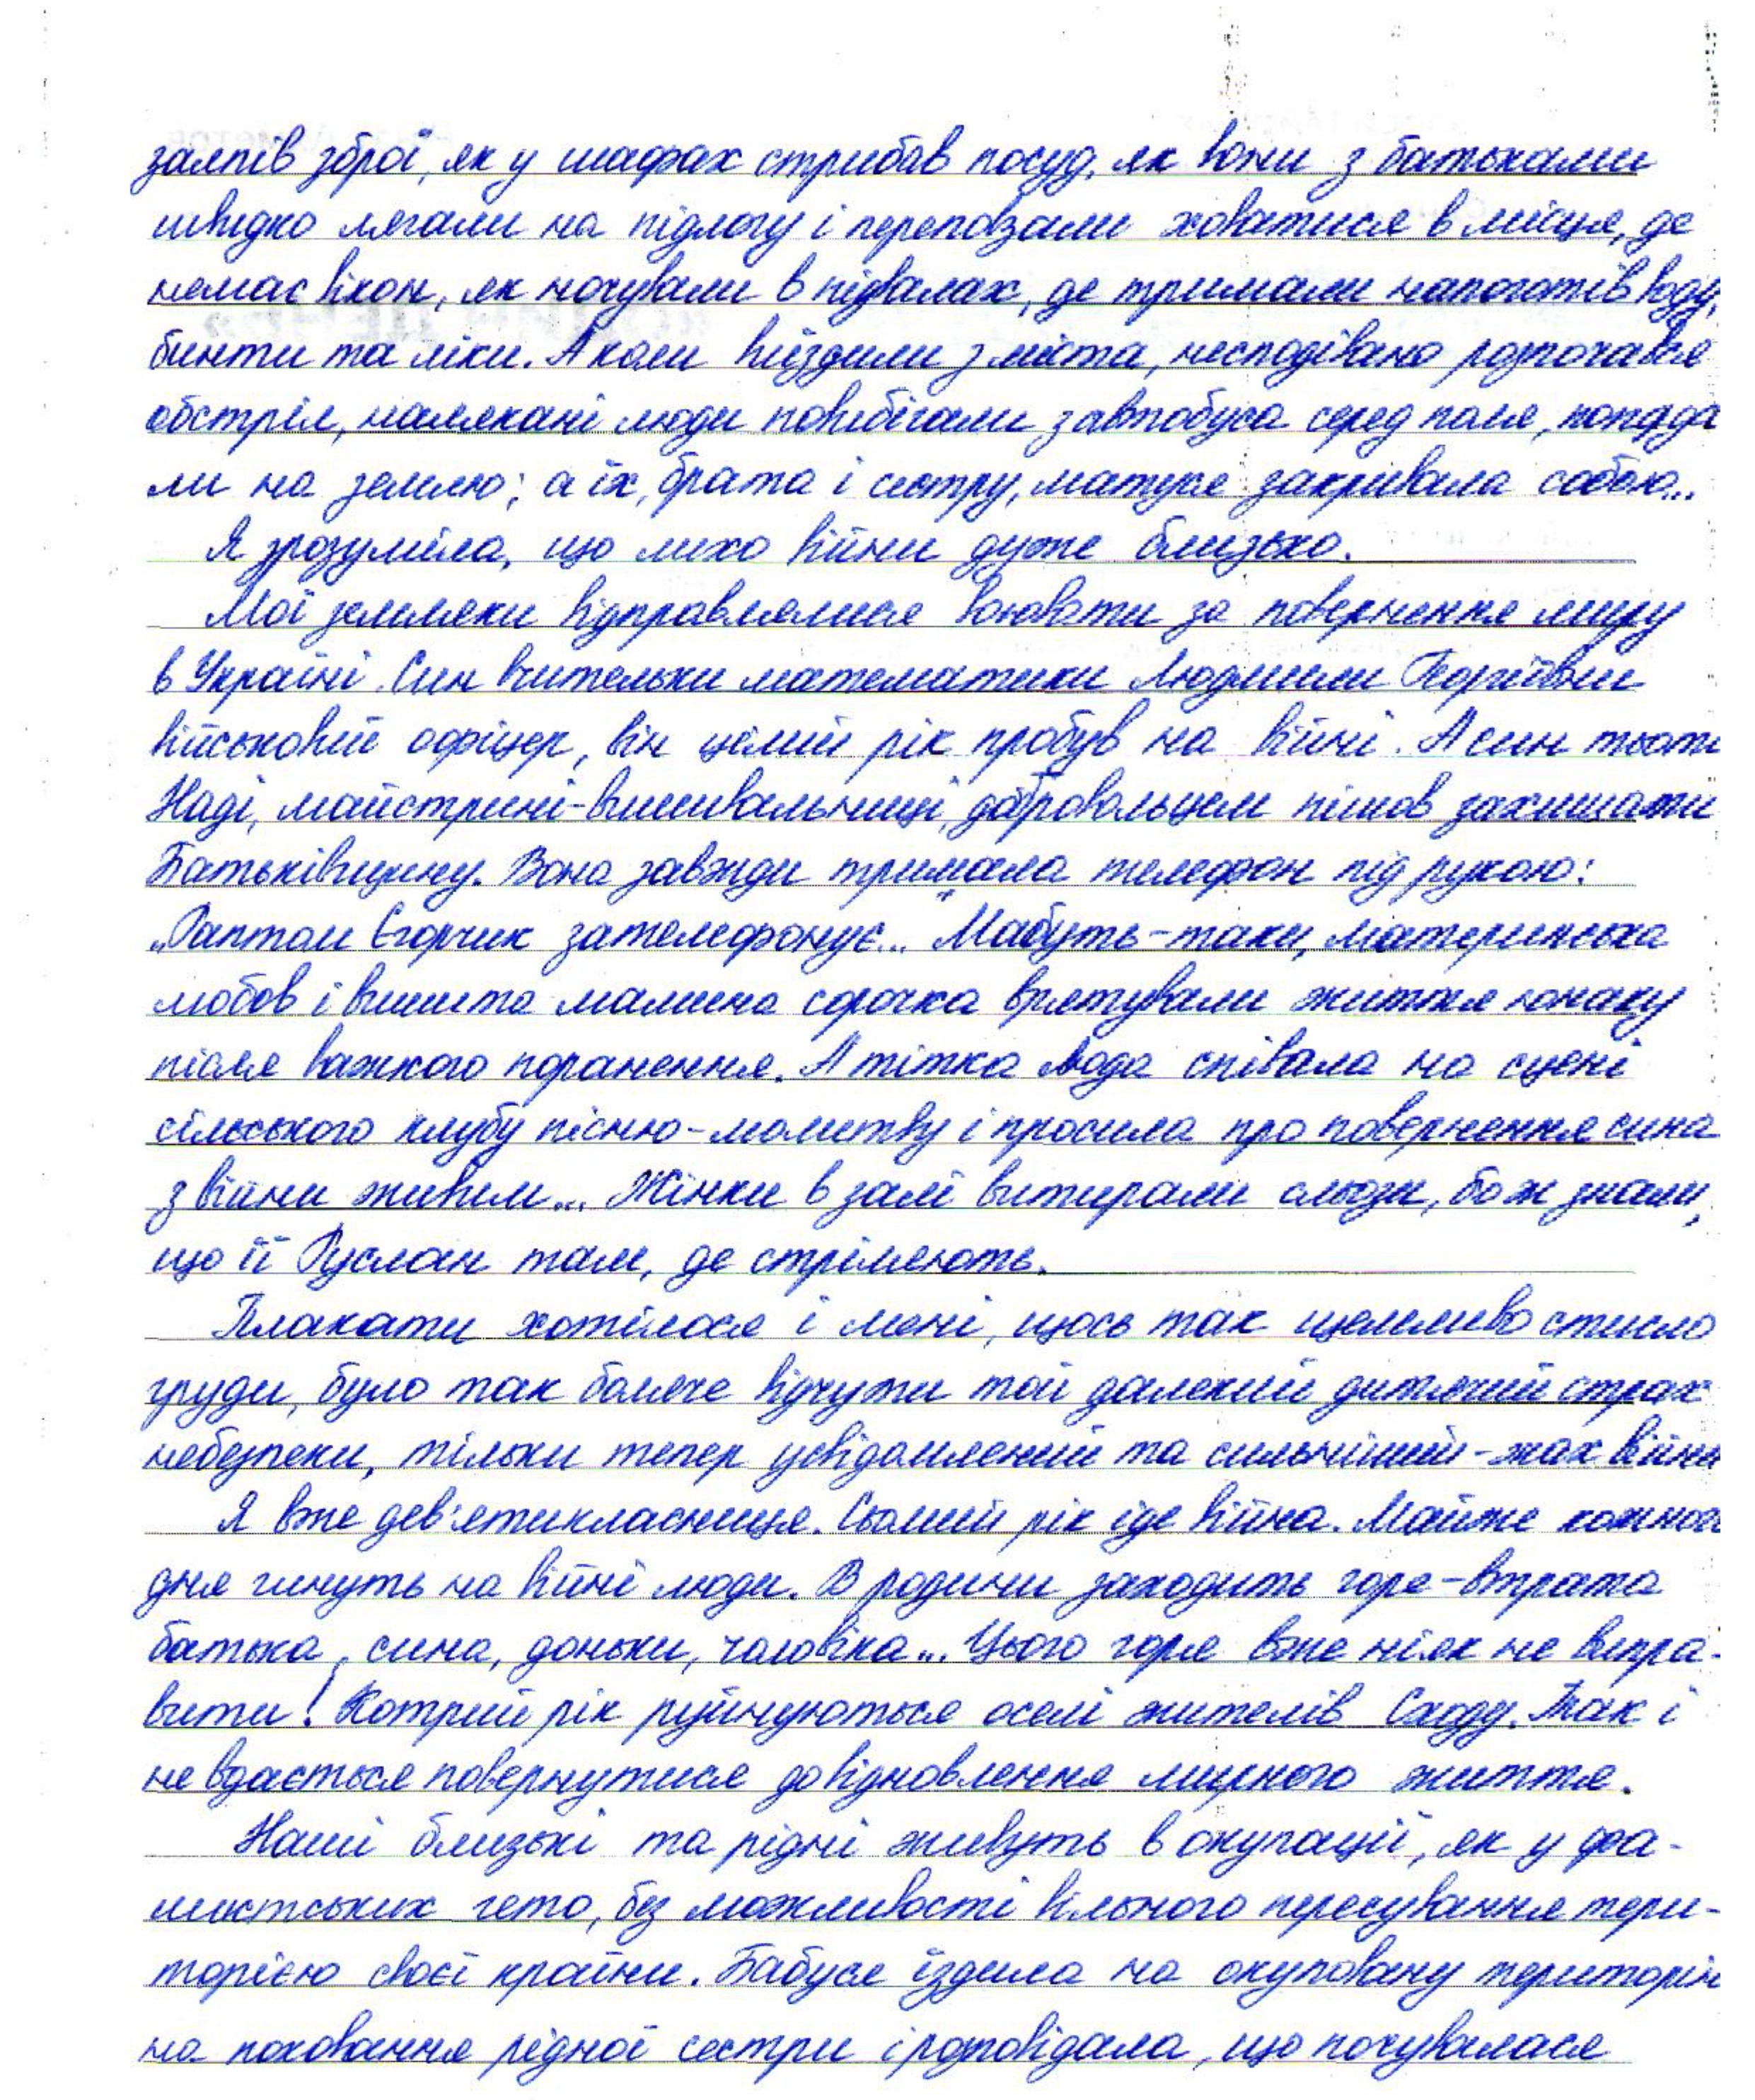 залпів зброї, як у шафах стрибав посуд, як вони з батьками
швидко лягали на підлогу і переповзали ховатися в місця, де
немає вікон, як ночували в підвалах, де тримали напоготів воду,
бинти та ліки. А коли виїздили з міста, несподівано розпочався
обстріл, налякані люди повибігали з автобуса серед поля, попада
ли на землю; а їх, брата і сестру, матуся закривала собою...
Я зрозуміла, що лихо війни дуже близько.
Мої земляки відправлялися воювати за повернення миру
в Україні. Син вчительки математики Людмили Георгіївни
військовий офіцер, він цілий рік пробув на війні. А син тьоті
Наді, майстрині-вишивальниці, добровольцем пішов захищати
Батьківщину. Вона завжди тримала телефон під рукою:
„Раптом Єгорчик зателефонує..." Мабуть-таки, материнська
любов і вишита мамина сорочка врятували життя юнаку
після важкого поранення. А тітка Люда співала на сцені
сільського клубу пісню-молитву і просила про повернення сина
з війни живим... Жінки в залі витирали сльози, бо ж знали,
що її Руслан там, де стріляють.
Плакати хотілося і мені, щось так щемливо стисло
груди, було так боляче відчути той далекий дитячий страх
небезпеки, тільки тепер усвідомлений та сильніший - жах війни
Я вже дев'ятикласниця. Сьомий рік іде війна. Майже кожного
дня гинуть на війні люди. В родини заходить горе - втрата
батька, сина, доньки, чоловіка... Цього горя вже ніяк не випра-
вити! Котрий рік руйнуються оселі жителів Сходу. Так і
не вдається повернутися до відновлення мирного життя.
Наші близькі та рідні живуть в окупації, як у фа-
шистських гето, без можливості вільного пересування тери-
торією своєї країни. Бабуся їздила на окуповану територію
на поховання рідної сестри і розповідала, що почувалася